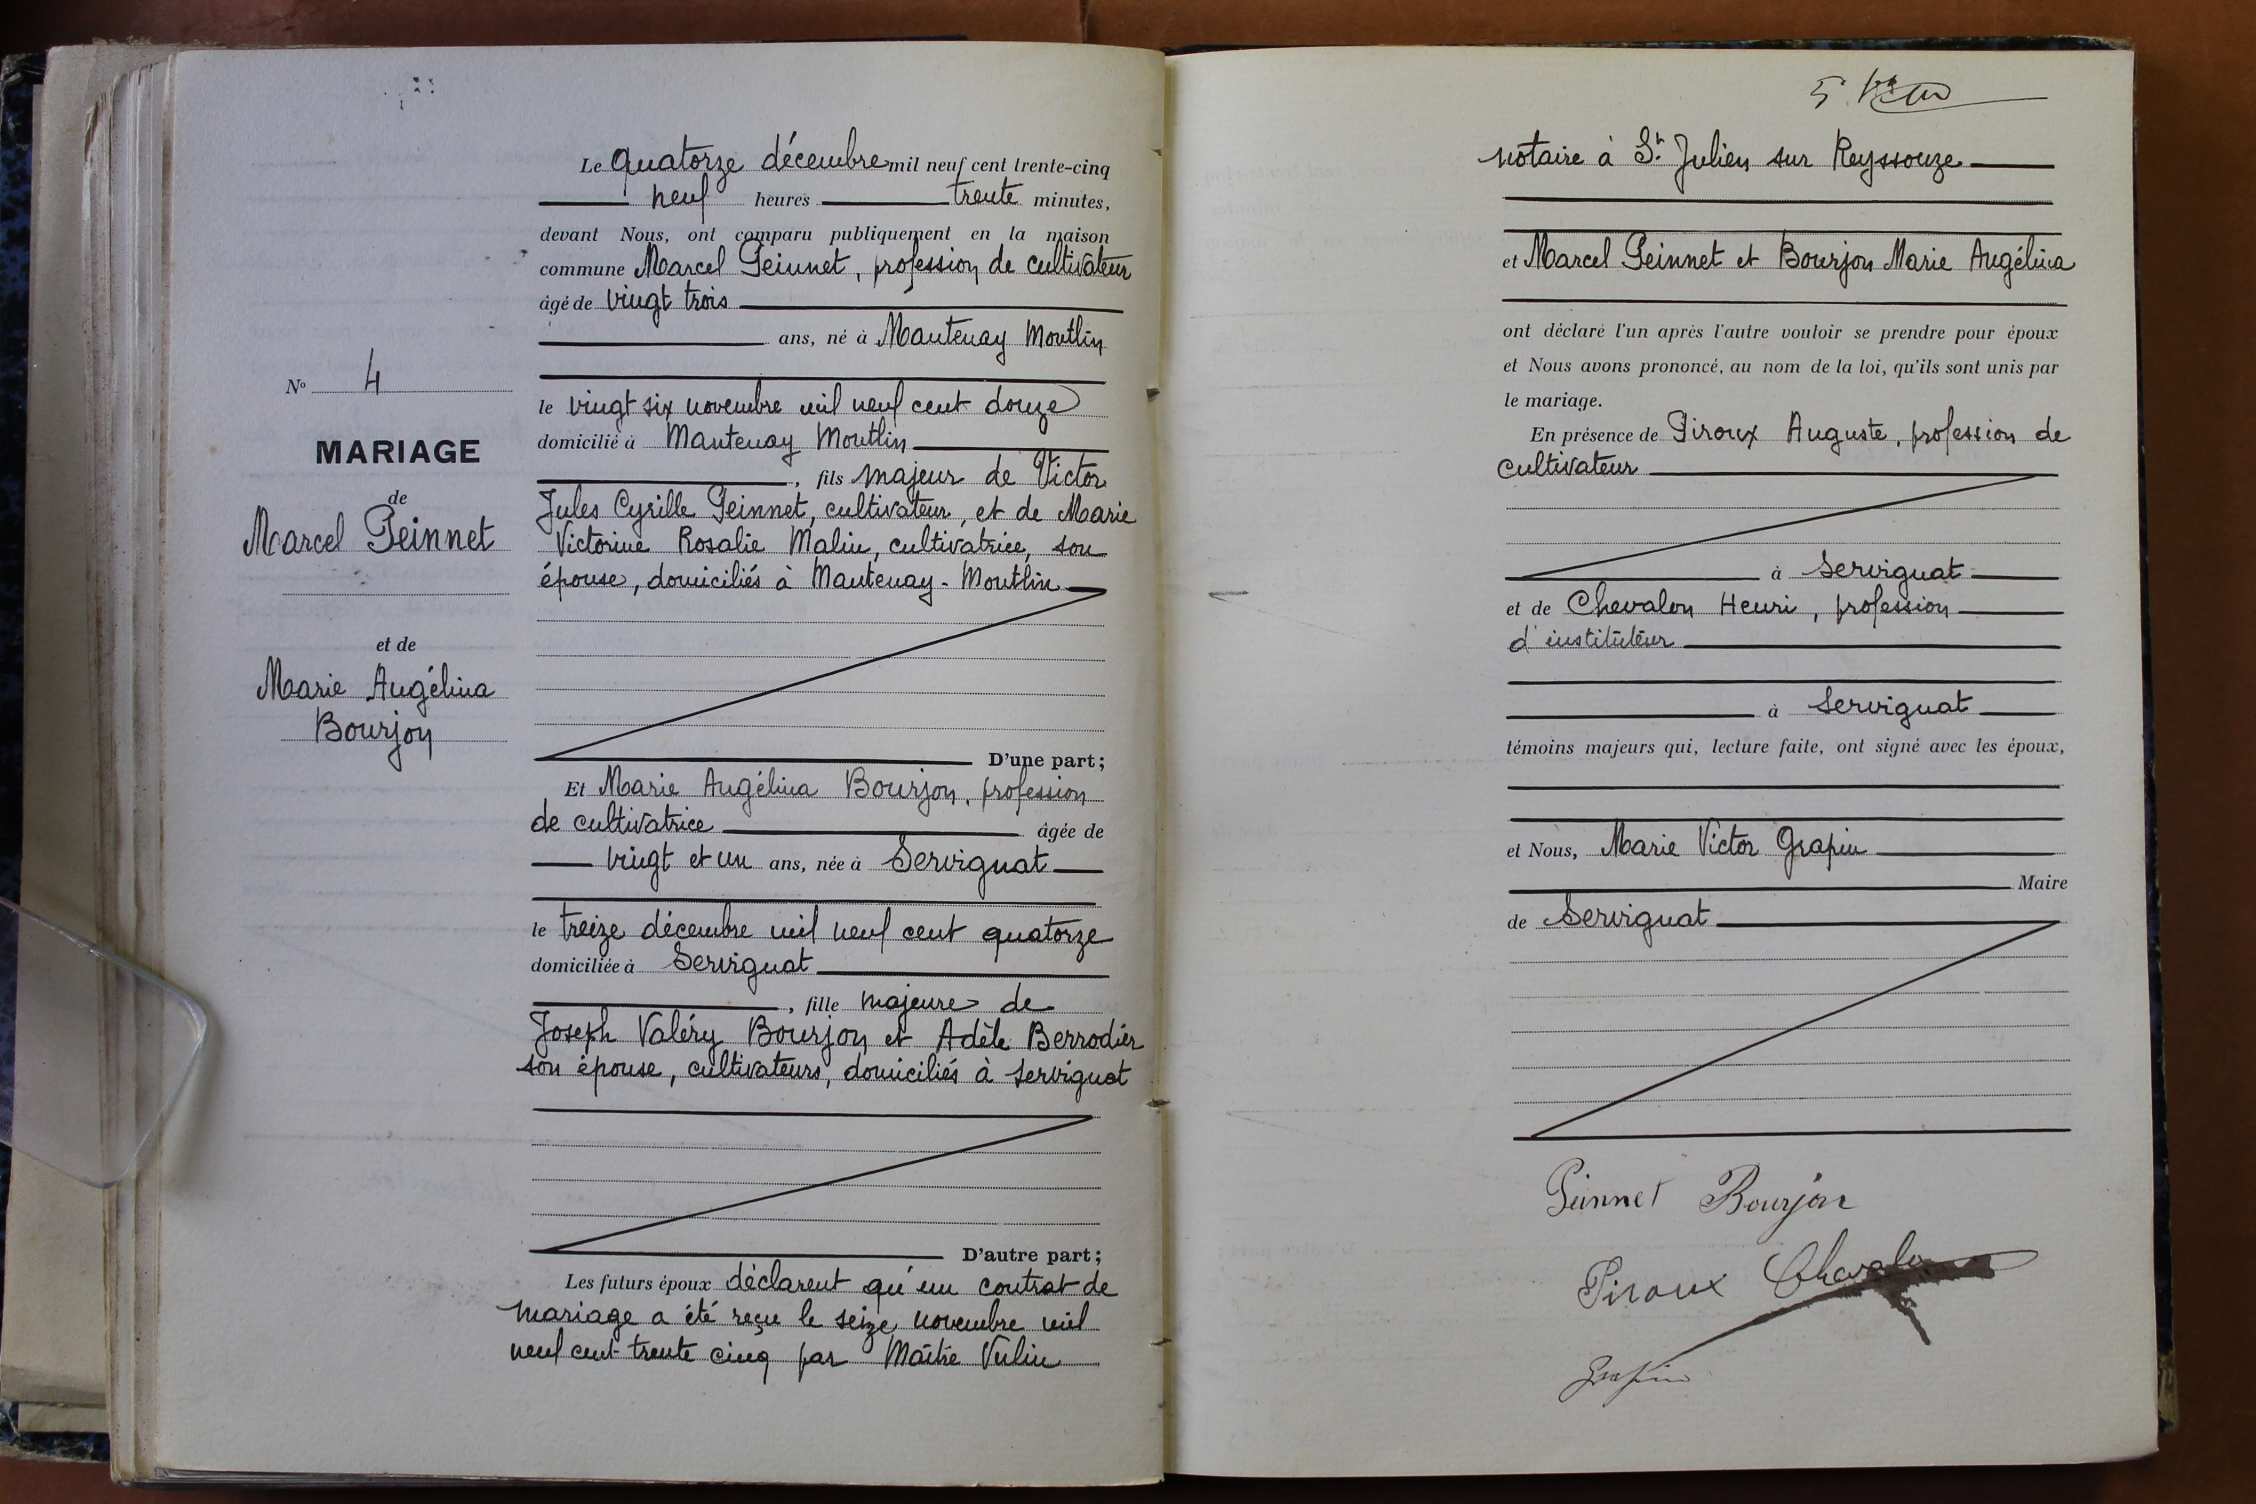 Le quatorze décembre mil neuf cent trente-cinq
neuf heures trente minutes,
devant Nous, ont comparu publiquement en la maison
commune Marcel Peinnet, profession de cultivateur
âgé de vingt trois
ans, né à Mantenay Montlin
le vingt six novembre mil neuf cent douze
domicilié à Mantenay Montlin
, fils majeur de Victor
Jules Cyrille Peinnet, cultivateur, et de Marie
Victorine Rosalie Malin, cultivatrice, son
épouse, domiciliés à Mantenay-Montlin
D'une part;
Et Marie Angélina Bourjon, profession
de cultivatrice âgée de
vingt et un ans, née à Servignat
le treize décembre mil neuf cent quatorze
domiciliée à Servignat
, fille majeure de
Joseph Valéry Bourjon et Adèle Berrodier
son épouse, cultivateurs, domiciliés à Servignat
D'autre part;
Les futurs époux déclarent qu'un contrat de
mariage a été reçu le seize novembre mil
neuf cent trente cinq par Maître Vulin
No 4
MARIAGE
de
Marcel Peinnet
et de
Marie Angélina
Bourjon
notaire à St Julien sur Reyssouze
et Marcel Peinnet et Bourjon Marie Angélina
ont déclaré l'un après l'autre vouloir se prendre pour époux
et Nous avons prononcé, au nom de la loi, qu'ils sont unis par
le mariage.
En présence de Piroux Auguste, profession de
cultivateur
à Servignat
et de Chevalon Henri, profession
d'instituteur
à Servignat
témoins majeurs qui, lecture faite, ont signé avec les époux,
et Nous, Marie Victor Grapin
Maire
de Servignat
Peinnet Bourjon
Piroux Chevalon
Grapin